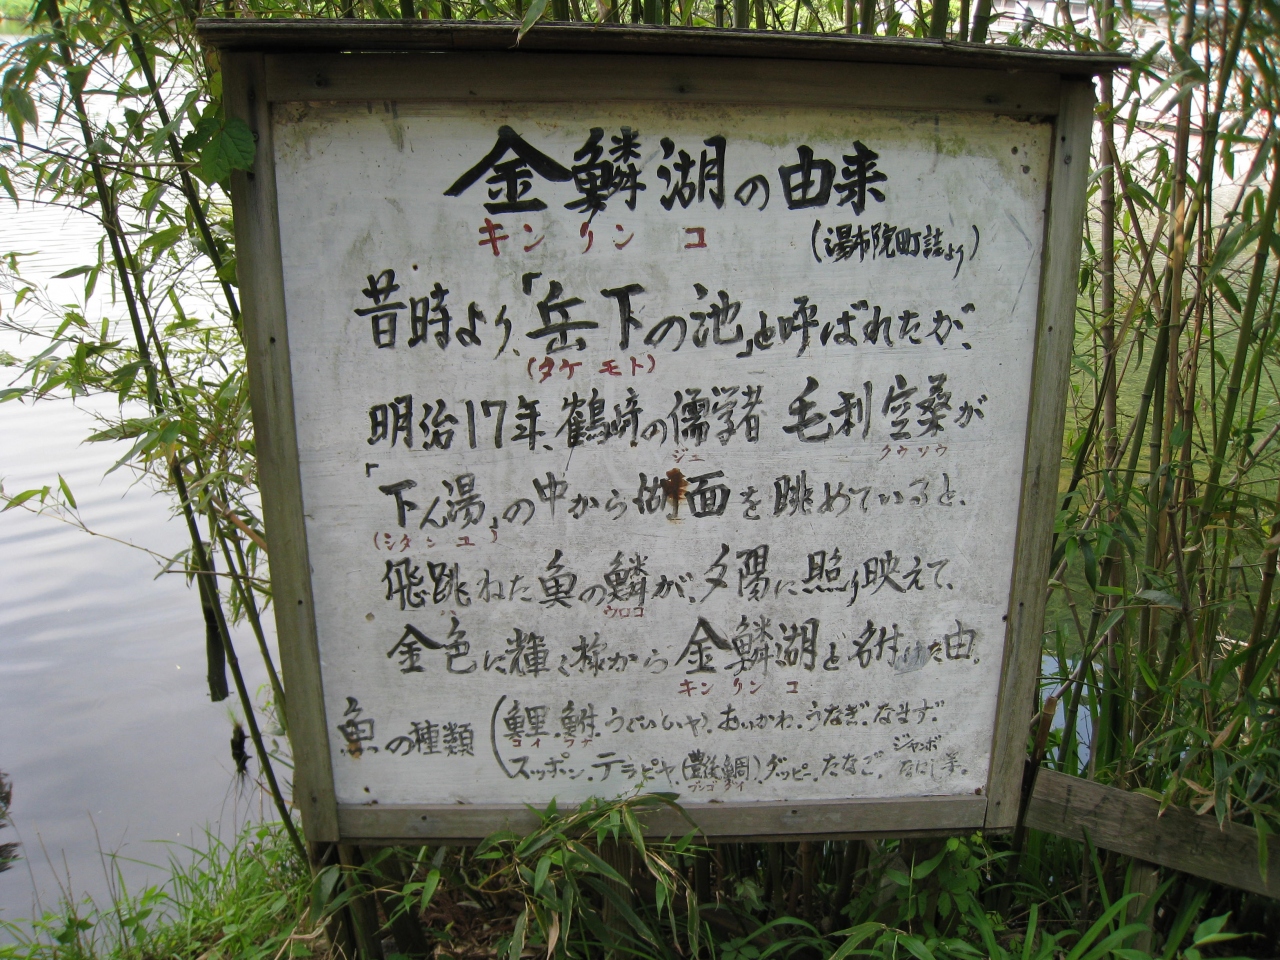 金鱗湖の由来
キンリンコ
(湯布院町誌より)
昔時より、「岳下の池」と呼ばれたが、
(タケモト)
明治17年、鶴崎の儒学者 毛利空桑が
ジュ クウソウ
「下ん湯」の中から湖面を眺めていると、
(シタンユ)
飛跳ねた魚の鱗が、夕陽に照り映えて、
ウロコ
金色に輝く様から金鱗湖と名付けた由。
キンリンコ
魚の種類 (鯉.鮒.うぐい(いや).おいかわ.うなぎ.なまず.
コイ フナ
スッポン.テラピヤ.(豊後鯛).グッピー.たなご.ジャンボたにし等。
ブンゴダイ